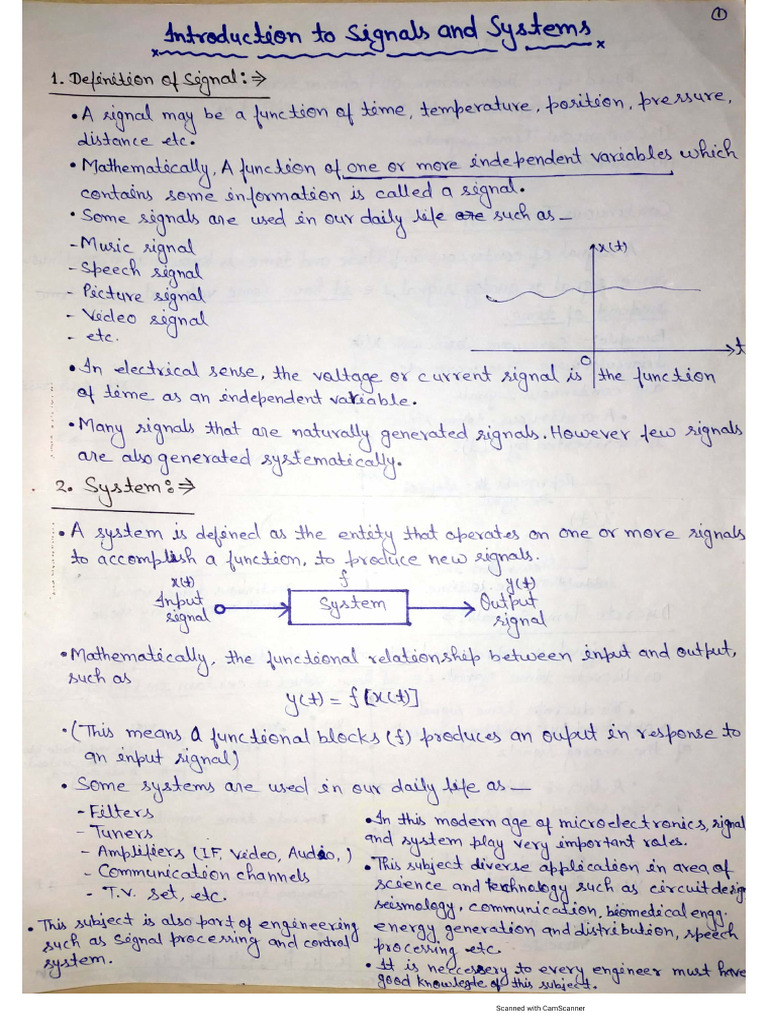 ①
Introduction to Signals and Systems
1. Definition of Signal:⇒
• A signal may be a function of time, temperature, position, pressure,
distance etc.
• Mathematically, A function of one or more independent variables which
contains some information is called a signal.
• Some signals are used in our daily life are such as –
- Music signal
- Speech signal
- Picture signal
- Video signal
- etc.
x(t)
t
O
• In electrical sense, the voltage or current signal is the function
of time as an independent variable.
• Many signals that are naturally generated signals. However few signals
are also generated systematically.
2. System:⇒
• A system is defined as the entity that operates on one or more signals
to accomplish a function, to produce new signals.
x(t) f y(t)
Input System Output
signal signal
• Mathematically, the functional relationship between input and output,
such as
y(t) = f[x(t)]
• (This means a functional blocks (f) produces an ouput in response to
an input signal)
• Some systems are used in our daily life as –
- Filters
- Tuners
- Amplifiers (IF, Video, Audio, )
- Communication channels
- T.V. set, etc.
• This subject is also part of engineering
such as Signal processing and control
system.
• In this modern age of microelectronics, signal
and system play very important roles.
• This subject diverse application in area of
science and technology such as circuit design
seismology, communication, biomedical engg.
energy generation and distribution, speech
processing etc.
• It is neccessery to every engineer must have
good knowlegde of this subject.
Scanned with CamScanner